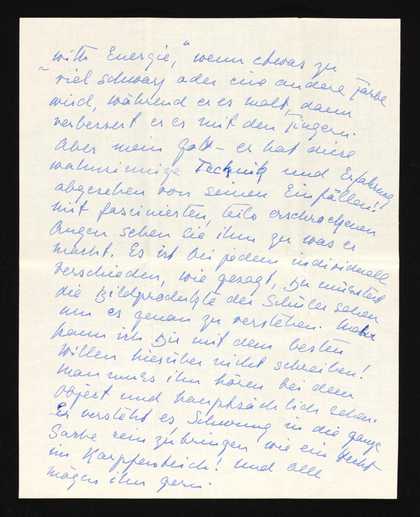 with Energie," wenn etwas zu
viel schwarz oder eine andere Farbe
wird, während er es malt, dann
verbessert er es mit den Fingern.
Aber mein Gott – er hat diese
wahnsinnige Technik und Erfahrung
abgesehen von seinen Einfällen!
mit fascinierten, teils erschrockenen
Augen sehen sie ihm zu was er
macht. Es ist bei jedem individuell
verschieden, wie gesagt, Du müsstest
die Bildprodukte der Schüler sehen
um es genau zu verstehen.
kann ich Dir mit dem besten
Willen hierüber nicht schreiben!
man muss ihn hören bei dem
Object und hauptsächlich sehen.
Er versteht es Schwung in die ganze
Sache reinzubringen wie ein Hecht
im Karpfenteich! und alle
mögen ihn gern.